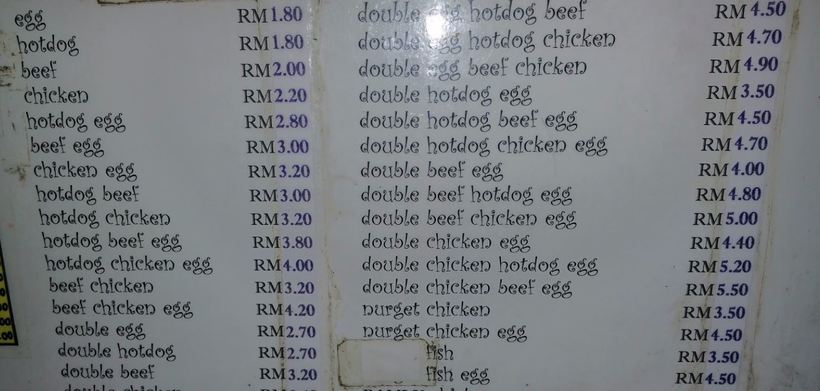 egg RM1.80
hotdog RM1.80
beef RM2.00
chicken RM2.20
hotdog egg RM2.80
beef egg RM3.00
chicken egg RM3.20
hotdog beef RM3.00
hotdog chicken RM3.20
hotdog beef egg RM3.80
hotdog chicken egg RM4.00
beef chicken RM3.20
beef chicken egg RM4.20
double egg RM2.70
double hotdog RM2.70
double beef RM3.20
double chicken
double egg hotdog beef RM4.50
double egg hotdog chicken RM4.70
double egg beef chicken RM4.90
double hotdog egg RM3.50
double hotdog beef egg RM4.50
double hotdog chicken egg RM4.70
double beef egg RM4.00
double beef hotdog egg RM4.80
double beef chicken egg RM5.00
double chicken egg RM4.40
double chicken hotdog egg RM5.20
double chicken beef egg RM5.50
nurget chicken RM3.50
nurget chicken egg RM4.50
fish RM3.50
fish egg RM4.50